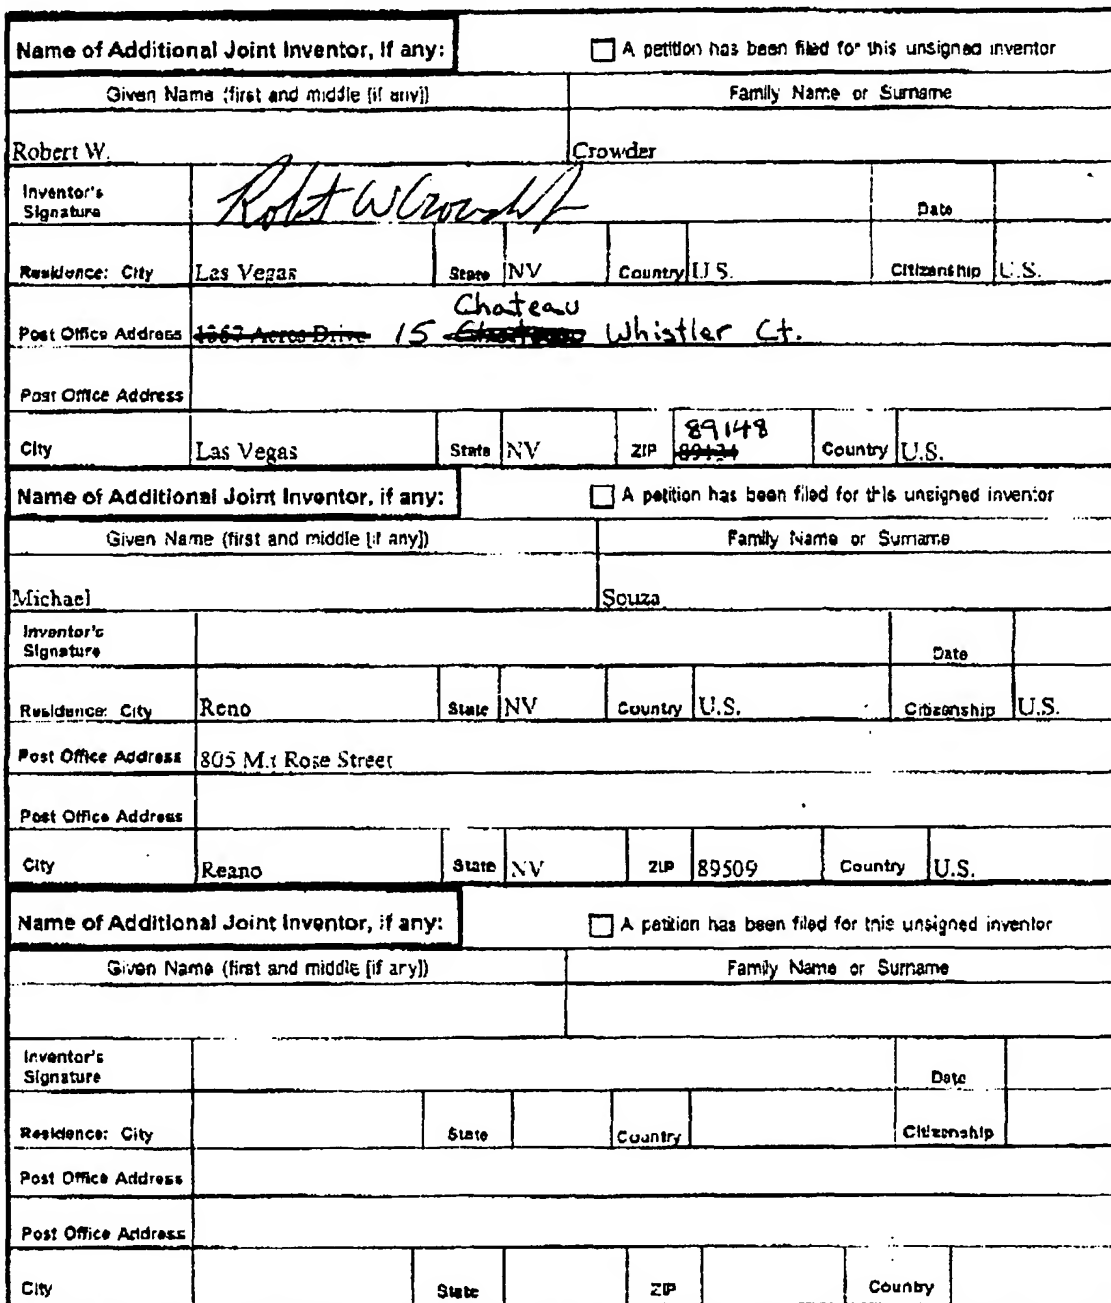 Name of Additional Joint Inventor, if any: A petition has been filed for this unsigned inventor
Given Name (first and middle [if any]) Family Name or Surname
Robert W. Crowder
Inventor's
Signature Robert W Crowder Jr Date
Residence: City Las Vegas State NV Country U.S. Citizenship U.S.
Chateau
Post Office Address 1367 Acros Drive 15 Whistler Ct.
Post Office Address
89148
City Las Vegas State NV ZIP 89134 Country U.S.
Name of Additional Joint Inventor, if any: A petition has been filed for this unsigned inventor
Given Name (first and middle [if any]) Family Name or Surname
Michael Souza
Inventor's
Signature Date
Residence: City Reno State NV Country U.S. Citizenship U.S.
Post Office Address 805 M.t Rose Street
Post Office Address
City Reano State NV ZIP 89509 Country U.S.
Name of Additional Joint Inventor, if any: A petition has been filed for this unsigned inventor
Given Name (first and middle [if any]) Family Name or Surname
Inventor's
Signature Date
Residence: City State Country Citizenship
Post Office Address
Post Office Address
City State ZIP Country